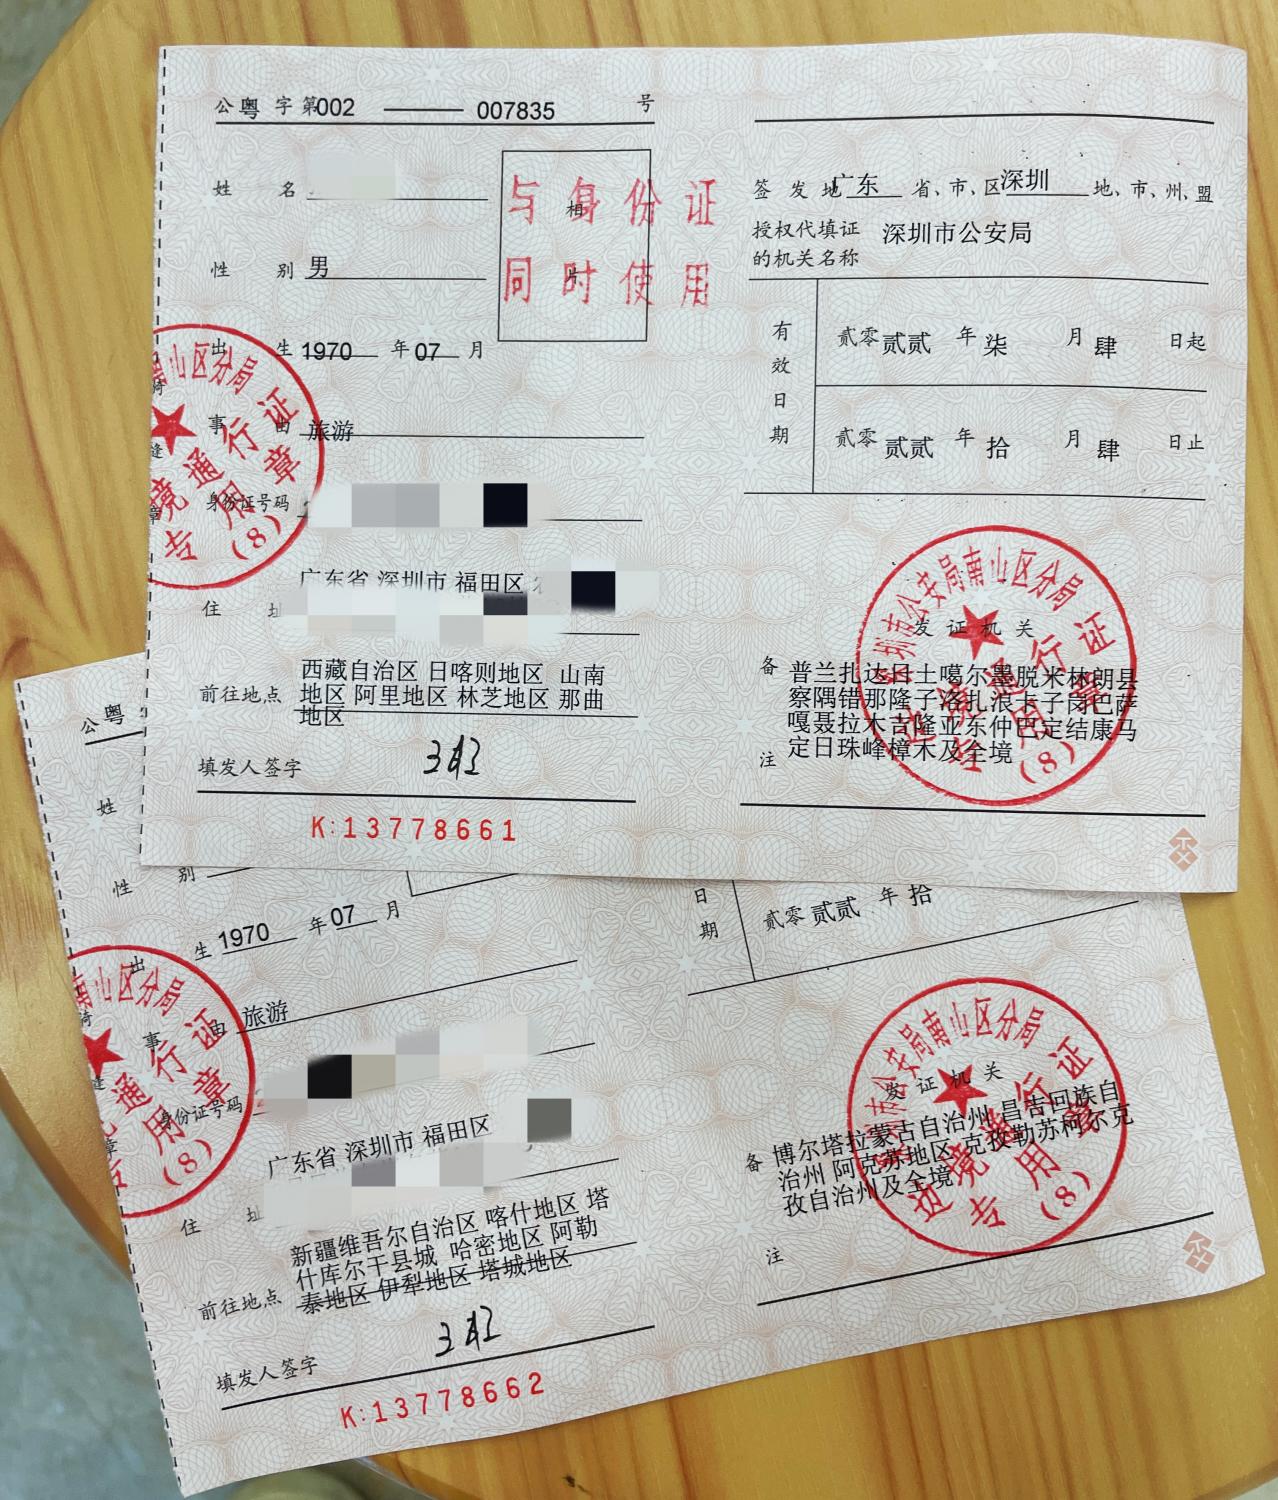 公粤 字第002 —— 007835 号
姓 名
性 别 男
出 生 1970 年 07 月
事 由 旅游
身份证号码
广东省 深圳市 福田区
住 址
前往地点 西藏自治区 日喀则地区 山南
地区 阿里地区 林芝地区 那曲
地区
填发人签字
K:13778661
相片
与身份证
同时使用
签发地 广东 省、市、区 深圳 地、市、州、盟
授权代填证
的机关名称 深圳市公安局
有效日期
贰零贰贰 年 柒 月 肆 日起
贰零贰贰 年 拾 月 肆 日止
发证机关
深圳市公安局南山区分局
边境通行证
专用章
(8)
备注 普兰扎达日土噶尔墨脱米林朗县
察隅错那隆子洛扎浪卡子岗巴萨
嘎聂拉木吉隆亚东仲巴定结康马
定日珠峰樟木及全境
南山区分局
境通行证
专用章
(8)
骑缝章
公粤
姓
性 别
出 生 1970 年 07 月
事 由 旅游
身份证号码
广东省 深圳市 福田区
住 址
前往地点 新疆维吾尔自治区 喀什地区 塔
什库尔干县城 哈密地区 阿勒
泰地区 伊犁地区 塔城地区
填发人签字
K:13778662
日期
贰零贰贰 年 拾
发证机关
深圳市公安局南山区分局
边境通行证
专用章
(8)
备注 博尔塔拉蒙古自治州 昌吉回族自
治州 阿克苏地区 克孜勒苏柯尔克
孜自治州及全境
南山区分局
通行证
专用章
(8)
骑缝章